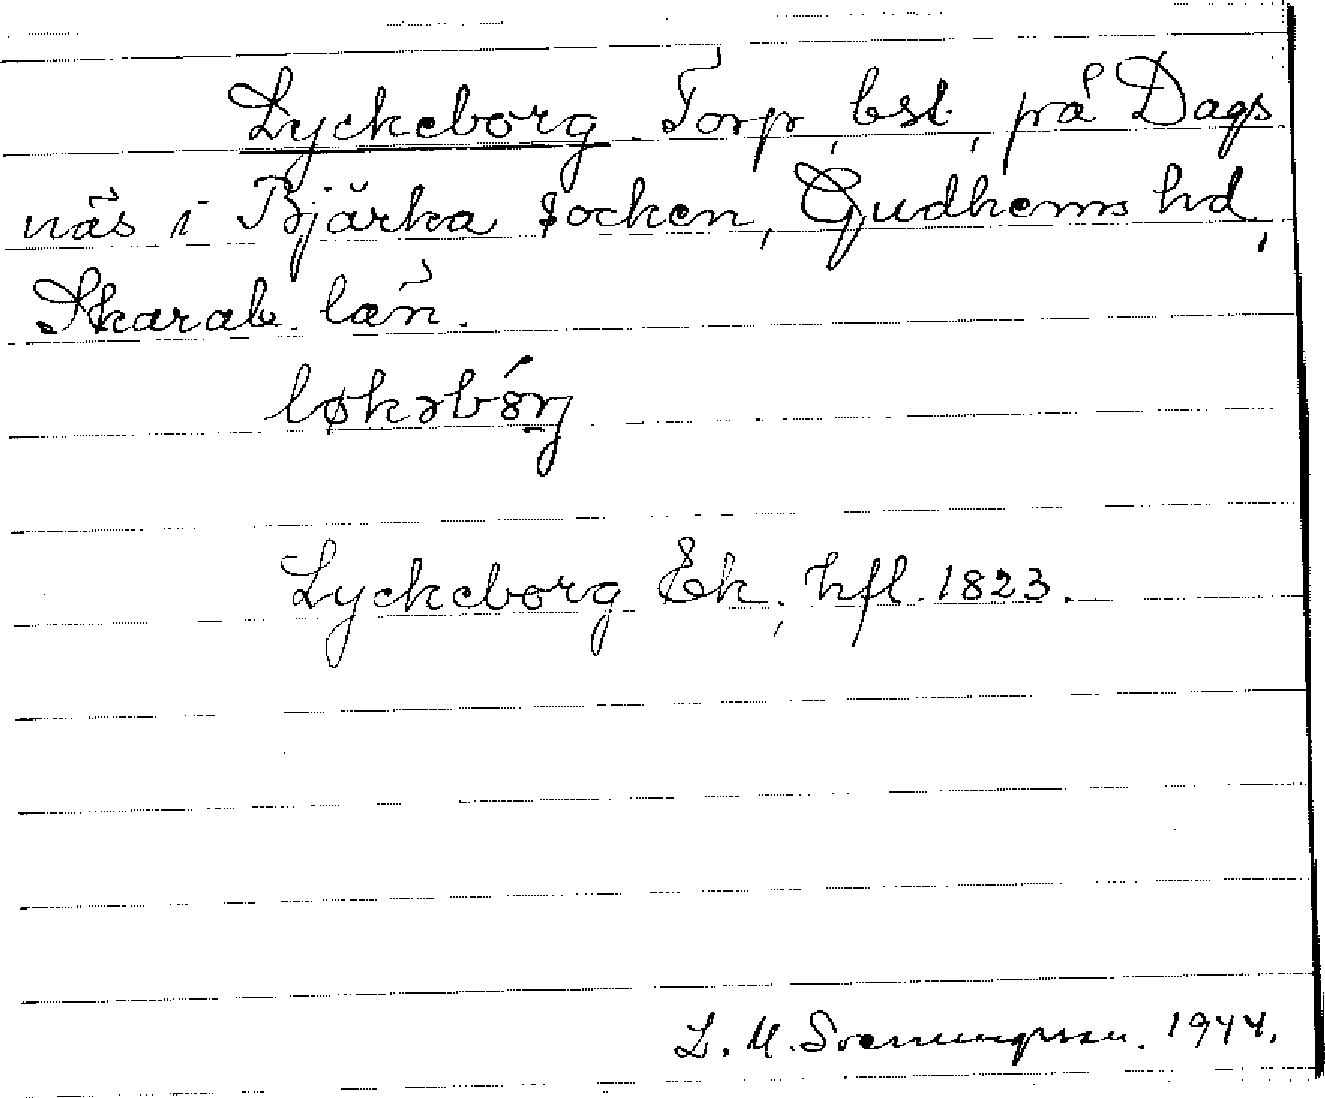 Lyckeborg. Torp, bst, på Dags
näs i Bjärka socken, Gudhems hd,
Skarab. län.
løkəbórj
Lyckeborg Ek, hfl. 1823.
L. M. Svenungsson. 1944.